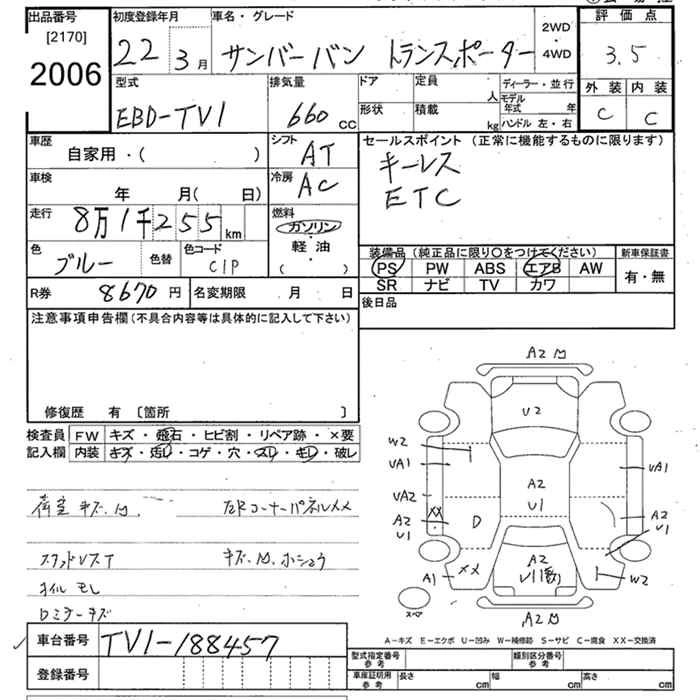 出品番号
[2170]
2006
初度登録年月
22 3月
車名・グレード
サンバーバン トランスポーター
2WD
・
4WD
評価点
3.5
外装 内装
C C
型式
EBD-TV1
排気量
660 CC
ドア
形状
定員
人
積載
kg
ディーラー・並行
モデル年式 年
ハンドル 左・右
車歴
自家用・( )
シフト
AT
車検
年 月( 日)
冷房
AC
走行
8万1千255km
燃料
ガソリン・
軽油・
( )
色
ブルー
色替
色コード
C1P
セールスポイント (正常に機能するものに限ります)
キーレス
ETC
装備品 (純正品に限り○をつけてください)
PS PW ABS エアB AW
SR ナビ TV カワ
新車保証書
有・無
R券 8670 円
名変期限 月 日
後日品
注意事項申告欄(不具合内容等は具体的に記入して下さい)
修復歴 有 [箇所 ]
検査員
記入欄
FW キズ・飛石・ヒビ割・リペア跡・×要
内装 キズ・汚レ・コゲ・穴・スレ・キレ・破レ
荷室 キズ.凹
左Rコーナーパネルメメ
キズ.凹.ホシュウ
オイルモレ
ロミラーキズ
A2 凹
U2
W2
UA1
UA2
A2
U1
メメ
D
A2
U1
UA1
A2
U1
A1
メメ
A2
U1
W2
A2 凹
スペア
A-キズ E-エクボ U-凹み W-補修跡 S-サビ C-腐食 XX-交換済
車台番号 TV1-188457
登録番号
型式指定番号
参考
類別区分番号
参考
車庫証明用
参考
長さ cm
幅 cm
高さ cm